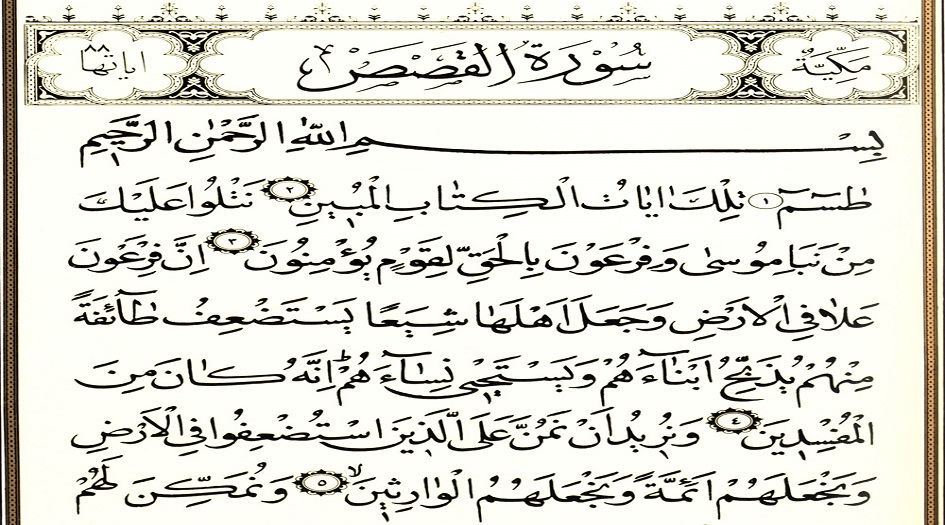 مَكِّيَّةٌ سُورَةُ الْقَصَصِ اٰيَاتُهَا ٨٨
بِسْمِ اللّٰهِ الرَّحْمٰنِ الرَّحٖيمِ
طٰسٓمٓ ﴿١﴾ تِلْكَ اٰيَاتُ الْكِتَابِ الْمُبٖينِ ﴿٢﴾ نَتْلُوا عَلَيْكَ
مِنْ نَبَاِ مُوسٰى وَفِرْعَوْنَ بِالْحَقِّ لِقَوْمٍ يُؤْمِنُونَ ﴿٣﴾ اِنَّ فِرْعَوْنَ
عَلَا فِي الْاَرْضِ وَجَعَلَ اَهْلَهَا شِيَعًا يَسْتَضْعِفُ طَٓائِفَةً
مِنْهُمْ يُذَبِّحُ اَبْنَٓاءَهُمْ وَيَسْتَحْيٖ نِسَٓاءَهُمْ اِنَّهُ كَانَ مِنَ
الْمُفْسِدٖينَ ﴿٤﴾ وَنُرٖيدُ اَنْ نَمُنَّ عَلَى الَّذٖينَ اسْتُضْعِفُوا فِي الْاَرْضِ
وَنَجْعَلَهُمْ اَئِمَّةً وَنَجْعَلَهُمُ الْوَارِثٖينَ ﴿٥﴾ وَنُمَكِّنَ لَهُمْ